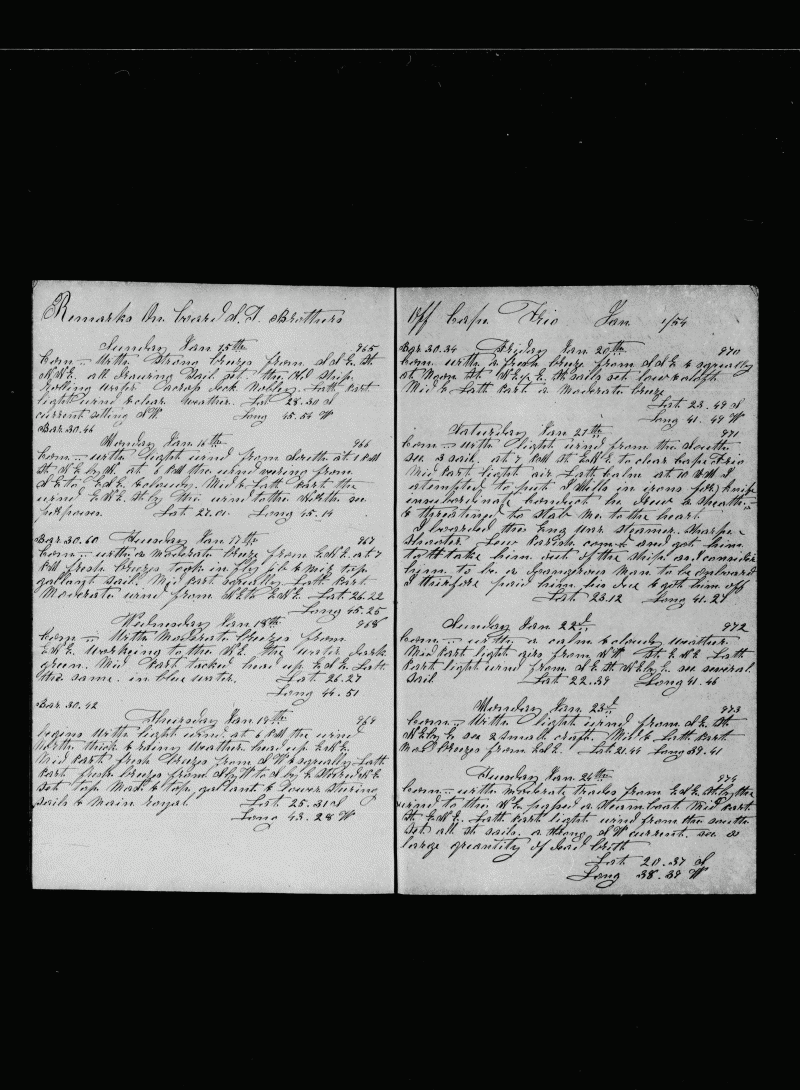 Remarks On board S. T. Brothers
Sunday Jan 15th 965
Com - With Strong breeze from S S E St
N N E. all drawing Sail set. the Old Ship
rolling water across deck Nobley. Latt Part
light wind & clear weather. Lat 28.30 S
current setting S W. Long 45.54 W
Bar 30.46
Monday Jan 16th 966
Com - With light wind from South at 1 PM
St N E by N. at 6 PM the wind veering from
S E to E S E Cloudy. Mid & Latt Part the
wind E N E St by the wind to the N
Lat 27.01 Long 45.14
Bar 30.60 Tuesday Jan 17th 967
Com - with a moderate breeze from E N E at 7
PM fresh breeze took in fly jib & miz top
gallant sail. Mid part squally. Latt Part
Moderate wind from N E to E N E. Lat 26.22
Long 45.25
Wednesday Jan 18th 968
Com - With Moderate breezes from
E N E working to the N E. the water dark
green. Mid Part tacked head up E S E. Latt
the same. in blue water. Lat 26.27
Long 44.51
Bar 30.42
Thursday Jan 19th 969
begins with light wind at 6 PM the wind
North thick & rainy weather. head up E N E.
Mid Part fresh breeze from S W & squally Latt
Part fresh breeze from S by W to S by E Steered N E
set top Mast & top gallant & Lower Stering
sails & Main royal Lat 25.31 S
Long 43.28 W
Off Cape Frio Jan 1/54
Bar 30.34 Friday Jan 20th 970
Com with a fresh breeze from S S E & squally
at Noon St N E by E. St sails set low & aloft
Mid & Latt Part a Moderate breeze
Lat 23.49 S
Long 41.49 W
Saturday Jan 21th 971
Com - with light wind from the South
see 3 sail. at 7 PM St E N E to clear Cape Frio
Mid Part light air Latt calm at 10 AM I
atempted to put J Mills in irons for
conduct he drew a Sheath
& thretened to Stab Me to the heart
I boarded the Eng War Steamer Sharpe
Shooter Com & and got him
to take him out of the Ship as I consider
him to be a dangerous Man to be onboard
I therfore paid him his due & got him off
Lat 23.12 Long 41.21
Sunday Jan 22d 972
Com - with a calm & cloudy weather
Mid Part light airs from N W St E N E Latt
Part light wind from S E St N E by E. see several
sail Lat 22.39 Long 41.46
Monday Jan 23d 973
Com - With light wind from S E St
N E by E see 2 small craft. Mid & Latt Part
Mod breeze from E S E Lat 21.44 Long 39.41
Tuesday Jan 24th 974
Com - with moderate trades from E S E St by the
wind to the N E passed a steamboat Mid Part
St E N E. Latt Part light wind from the south
Set all St sails. a Strong S W current. see a
large quantity of
Lat 20.37 S
Long 38.39 W